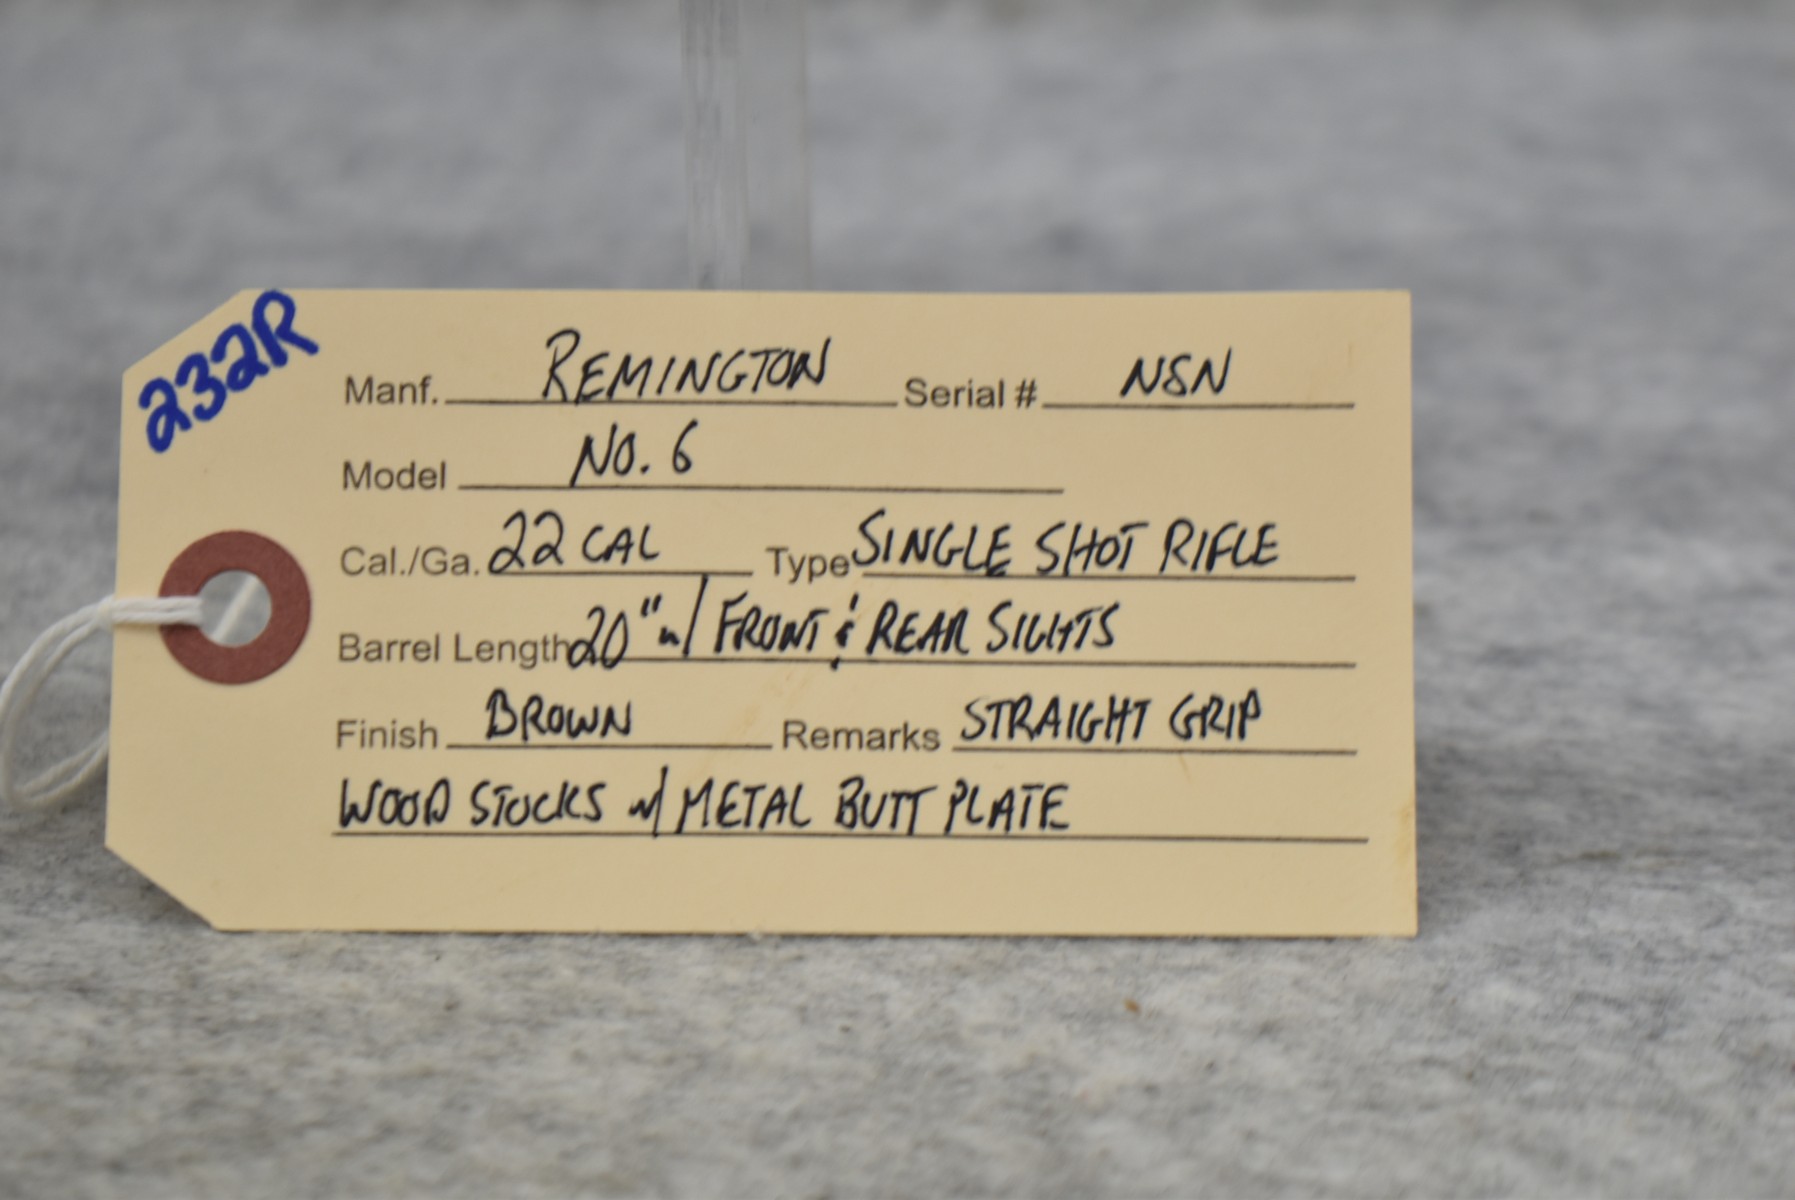 232R
Manf. REMINGTON Serial # NSN
Model NO. 6
Cal./Ga. 22 CAL Type SINGLE SHOT RIFLE
Barrel Length 20" w/ FRONT & REAR SIGHTS
Finish BROWN Remarks STRAIGHT GRIP
WOOD STOCKS w/ METAL BUTT PLATE